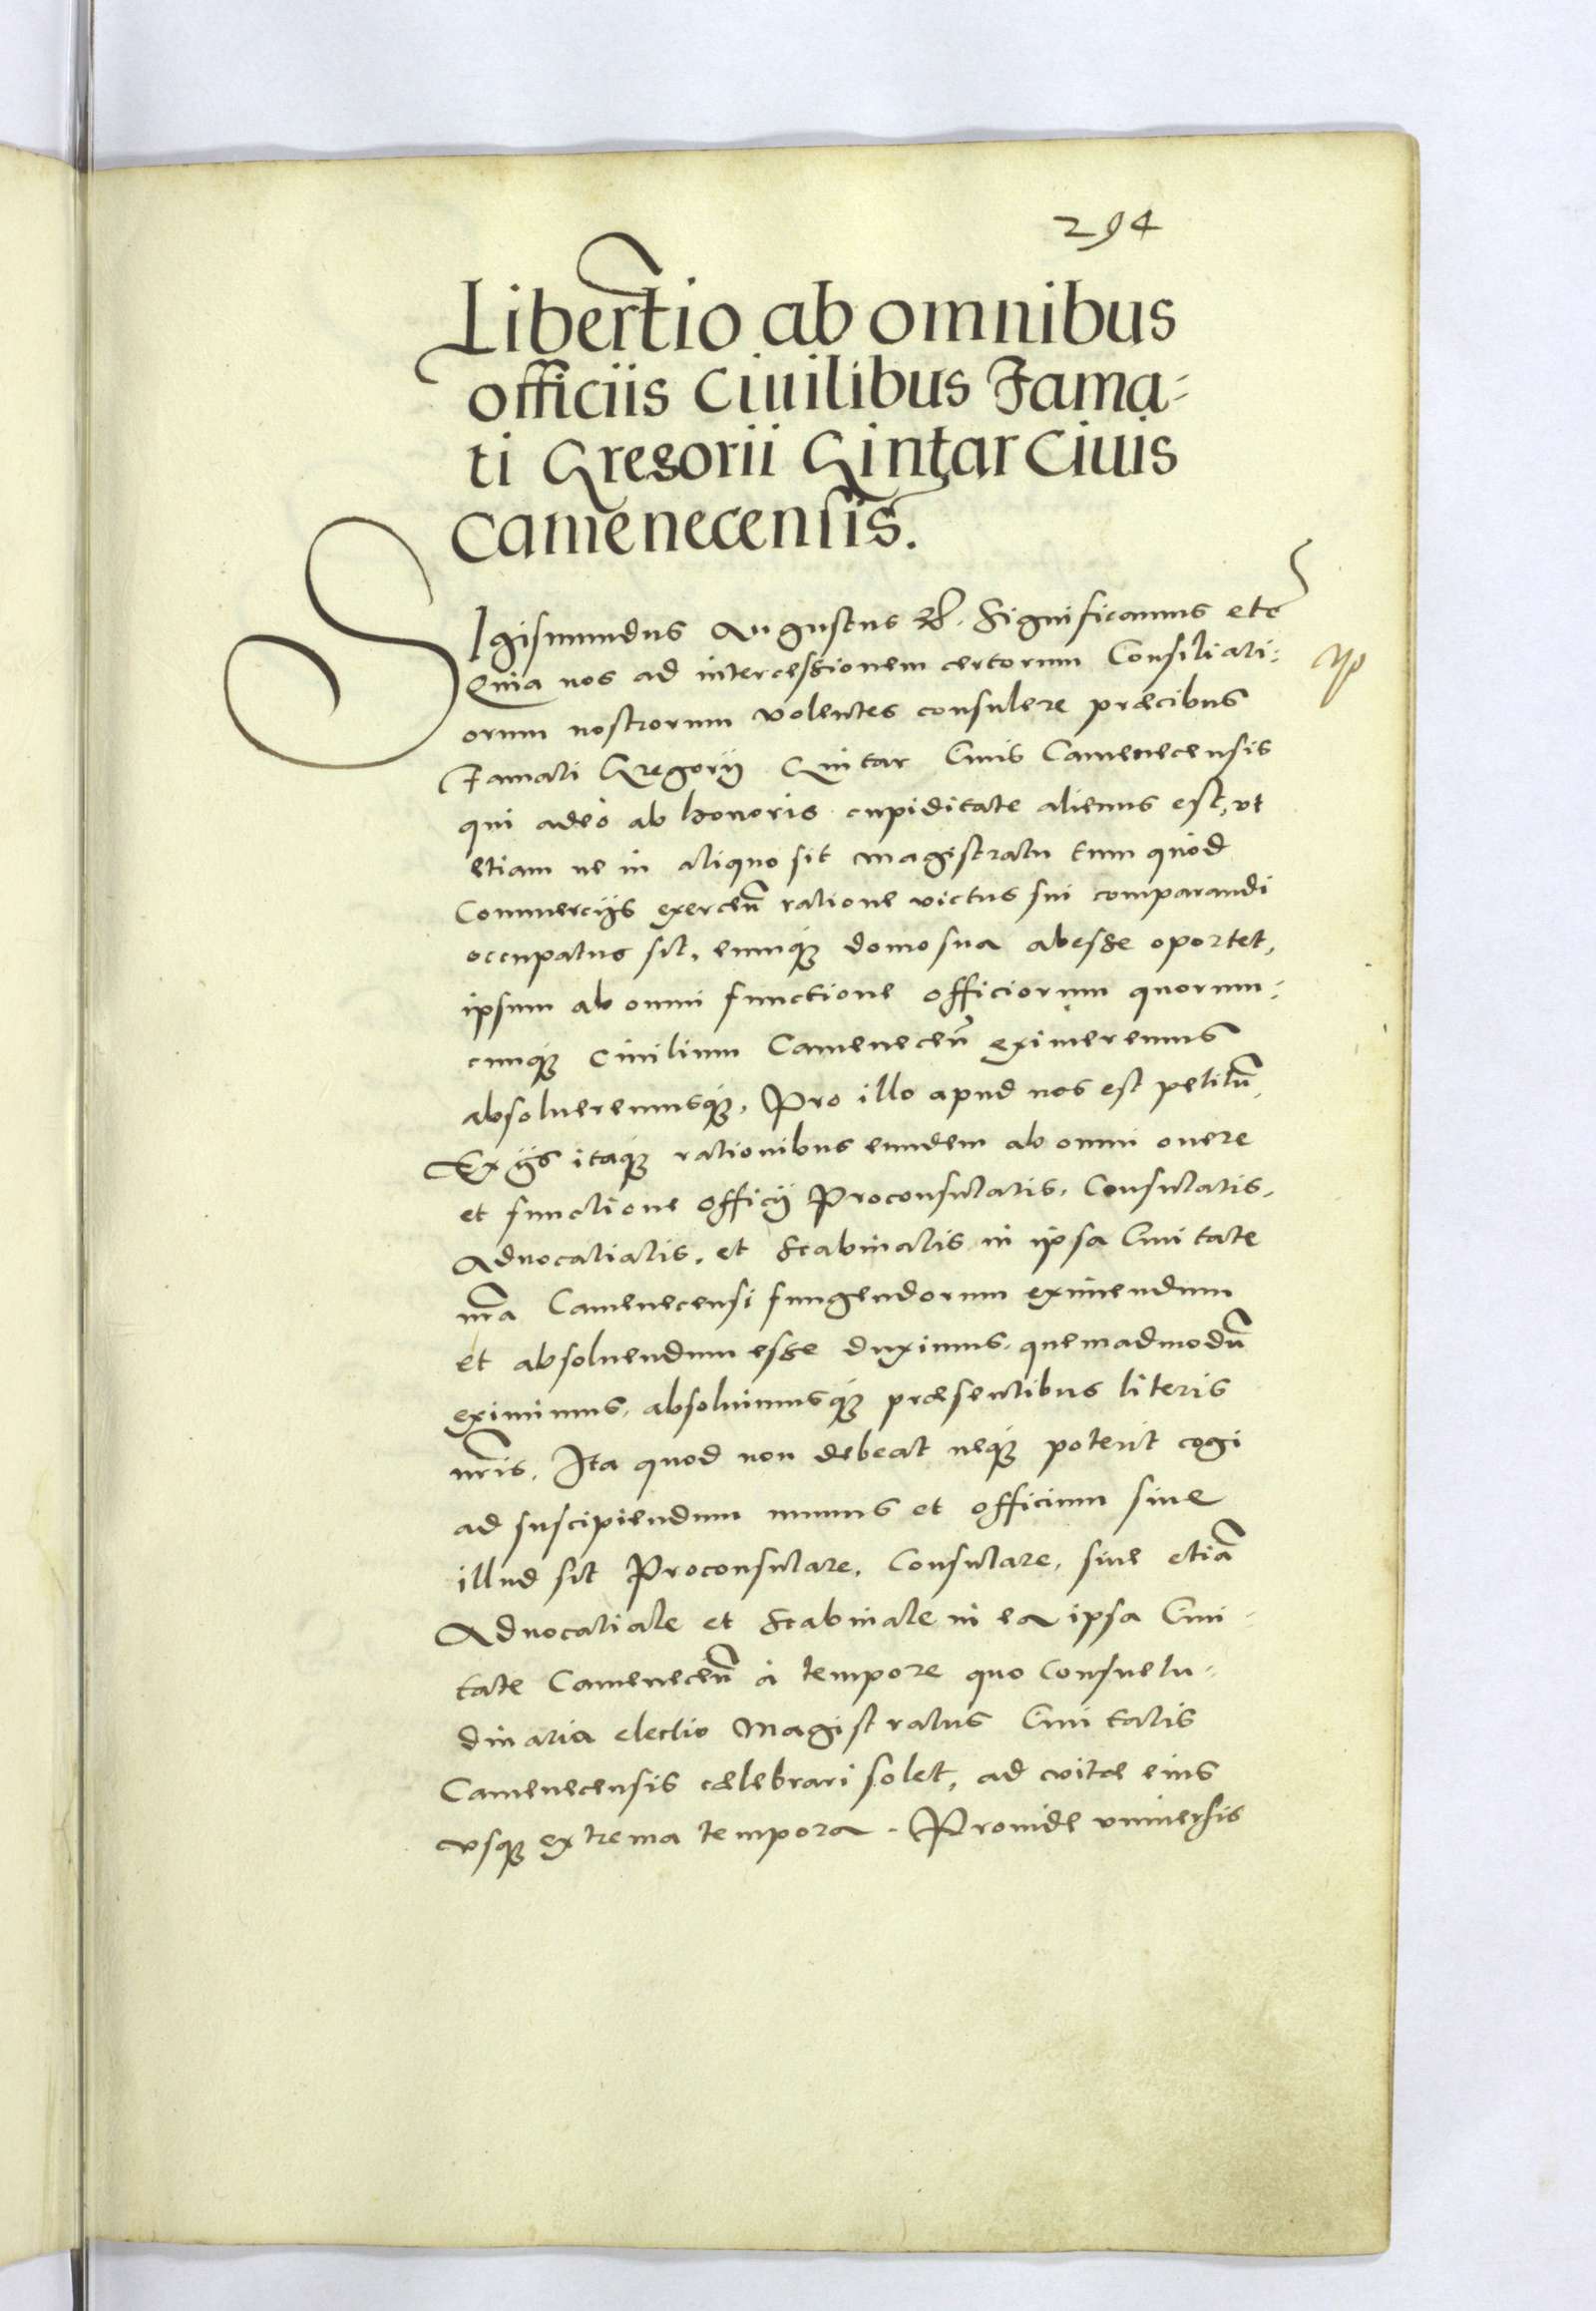 294
Libertio ab omnibus
officiis Ciuilibus Fama-
ti Gregorii Gintar Ciuis
Camenecensis.
SIgismundus Augustus &. Significamus etc
Quia nos ad intercessionem certorum Consiliari-
orum nostrorum volentes consulere præcibus
Famati Gregorij Gintar Ciuis Camenecensis
qui adeò ab honoris cupiditate alienus est, vt
etiam ne in aliquo sit magistratu tum quòd
Commercijs exercen̄ ratione victus sui comparandi
occupatus sit, eumq́ꝫ domo sua abesse oportet,
ipsum ab omni functione officiorum quorum-
cunq́ꝫ Ciuilium Camenecen̄ eximeremus
absolueremusq́ꝫ, Pro illo apud nos est petitū,
Ex ijs itaq́ꝫ rationibus eundem ab omni onere
et functione officij Proconsularis, Consularis,
Aduocatialis, et Scabinalis in ipsa Ciuitate
nr̄a Camenecensi fungendorum eximendum
et absoluendum esse duximus, quemadmodū
eximimus, absoluimusq́ꝫ præsentibus literis
nr̄is, Ita quod non debeat neq́ꝫ poterit cogi
ad suscipiendum munus et officium siue
illud sit Proconsulare, Consulare, siue etiā
Aduocatiale et Scabinale in ea ipsa Ciui-
tate Camenecen̄ à tempore quo Consuetu-
dinaria electio Magistratus Ciuitatis
Camenecensis cælebrari solet, ad vitæ eius
vsqꝫ extrema tempora. Proinde vniuersis